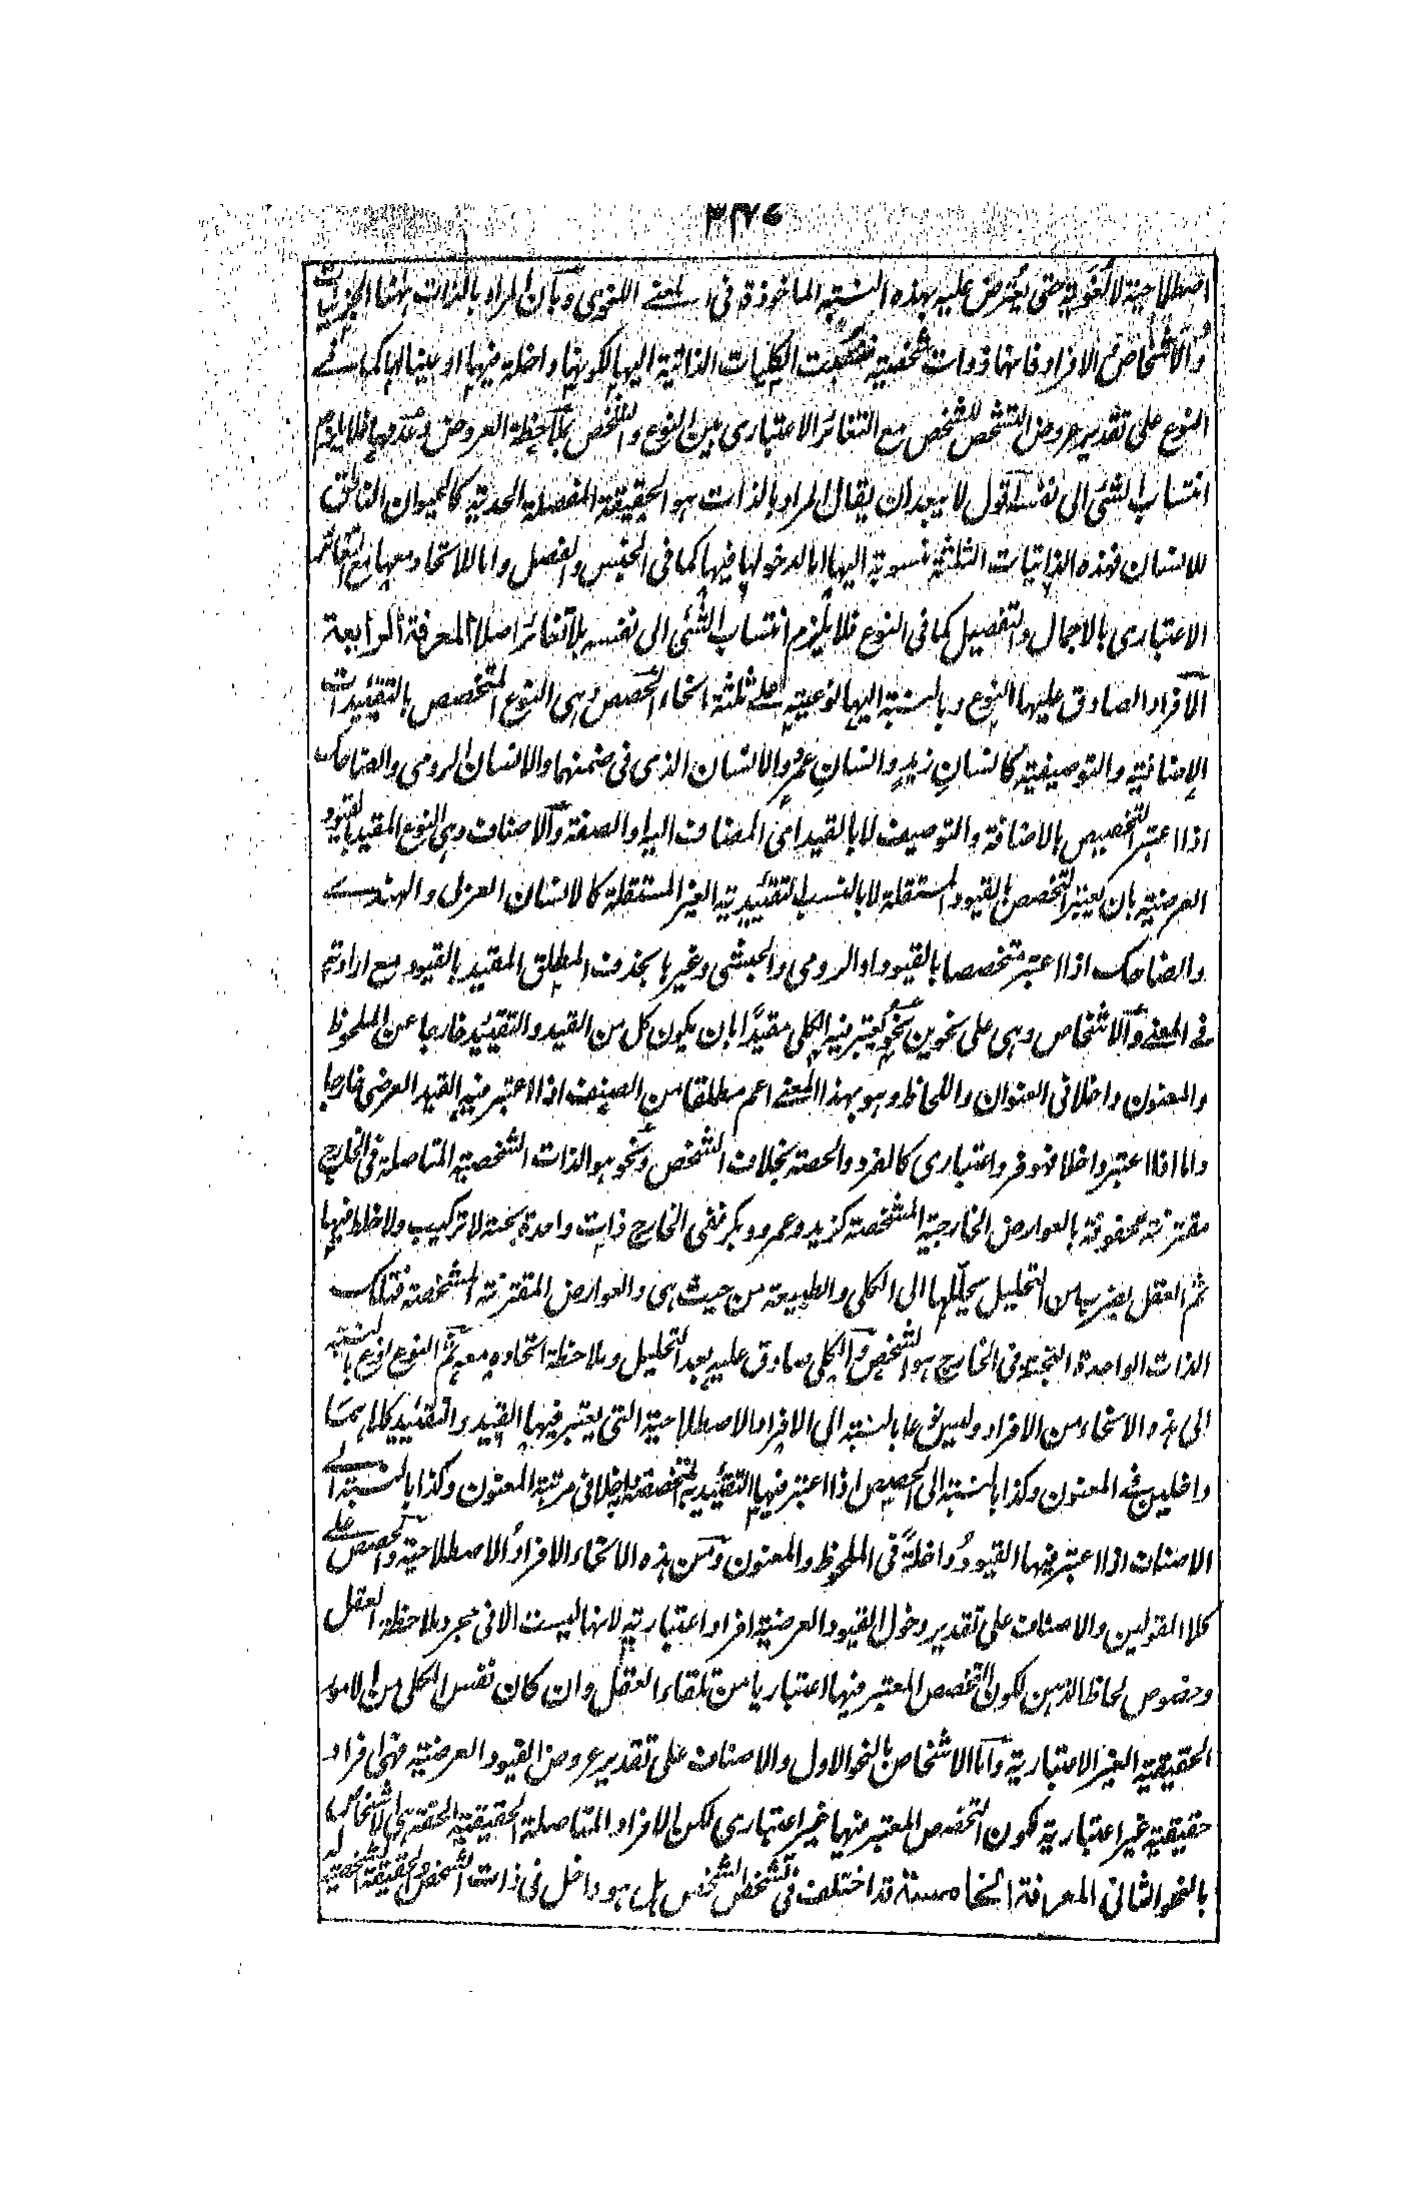 اصطلاحية لا لغوية حتى يعترض عليه بهذه النسبة الماخوذة فى المعنے اللغوى وبان المراد بالذات ههنا الجزئيات
والاشخاص من الافراد فانها ذوات شخصية فنسبت الكليات الذاتية اليها لكونها داخلة فيها او عينا لها كما فے
النوع على تقدير عروض التشخص للشخص مع التغائر الاعتبارى بين النوع والشخص بملاحظة العروض وعدمها فلا يلزم
انتساب الشئ الى نفسه اقول لا يبعد ان يقال المراد بالذات هو الحقيقة المفصلة الحدية كالحيوان الناطق
للانسان فهذه الذاتيات الثلثة منسوبة اليها اما لدخولها فيها كما فى الجنس والفصل واما للاتحاد معها مع التغائر
الاعتبارى بالاجمال والتفصيل كما فى النوع فلا يلزم انتساب الشئ الى نفسه بلا تغائر اصلا المعرفة الرابعة
الافراد الصادق عليها النوع وبالنسبة اليها نوعيته على ثلثة انحاء الحصص وهى النوع المتخصص بالتقئيدات
الاضافية والتوصيفية كانسان زيد وانسان عمرو الانسان الذى فى ضمنهما والانسان الرومى والضاحك
اذا اعتبر التخصيص بالاضافة والتوصيف لا بالقيد اعنى المضاف اليه او الصفة والاصناف وهى النوع المقيد بالقيود
العرضية بان يعتبر التخصص بالقيود المستقلة لا بالنسب التقئيدية الغير المستقلة كالانسان العزلى والهندے
والضاحك اذا اعتبر متخصصا بالقيود او الرومى والحبشى وغيرها بحذف المطلق المقيد بالقيود مع ارادته
فے المعنے والاشخاص وهى على نحوين نحو يعتبر فيه الكلى مقيدا بان يكون كل من القيد والتقئيد خارجا عن الملحوظ
والمعنون داخلا فى العنوان واللحاظ وهو بهذا المعنے اعم مطلقا من الصنف اذا اعتبر فيه القيد العرضى خارجا
واما اذا اعتبر داخلا فهو فرد اعتبارى كالفرد والحصة بخلاف الشخص ونحو هو الذات الشخصية المتاصلة فى الخارج
مقترنة محفوفة بالعوارض الخارجية المشخصة كزيد وعمرو وبكر ففى الخارج ذات واحدة بحتة لا تركيب ولا خلط فيها
ثم العقل بضرب من التحليل يحللها الى الكلى والطبيعة من حيث هى والعوارض المقترنة المشخصة فتلك
الذات الواحدة البحتة فى الخارج هو الشخص والكلى صادق عليه بعد التحليل وملاحظة اتحاده معه ثم النوع نوع بالنسبة
الى هذه الانحاء من الافراد وليس نوعا بالنسبة الى الافراد الاصطلاحية التى يعتبر فيها القيد والتقئيد كلاهما
داخلين فے المعنون وكذا بالنسبة الى الحصص اذا اعتبر فيها التقئيدية المتخصصة داخلا فى مرتبة المعنون وكذا بالنسبة الے
الاصناف اذا اعتبر فيها القيود داخلة فى الملحوظ والمعنون ومن هذه الانحاء الافراد الاصطلاحية والحصص علے
كلا القولين والاصناف على تقدير دخول القيود العرضية افراد اعتبارية لانها ليست الا فى مجرد ملاحظة العقل
وخصوص لحاظ الذهن لكون التخصص المعتبر فيها اعتباريا من تلقاء العقل وان كان نفس الكلى من الامور
الحقيقية الغير الاعتبارية واما الاشخاص بالنحو الاول والاصناف على تقدير عروض القيود العرضية فهى افراد
حقيقية غير اعتبارية لكون التخصص المعتبر فيها غير اعتبارى لكن الافراد المتاصلة الحقيقية الحقة هى الاشخاص
بالنحو الثانى المعرفة الخامسة قد اختلف فى تشخص الشخص هل هو داخل فى ذات الشخص والحقيقة الشخصية